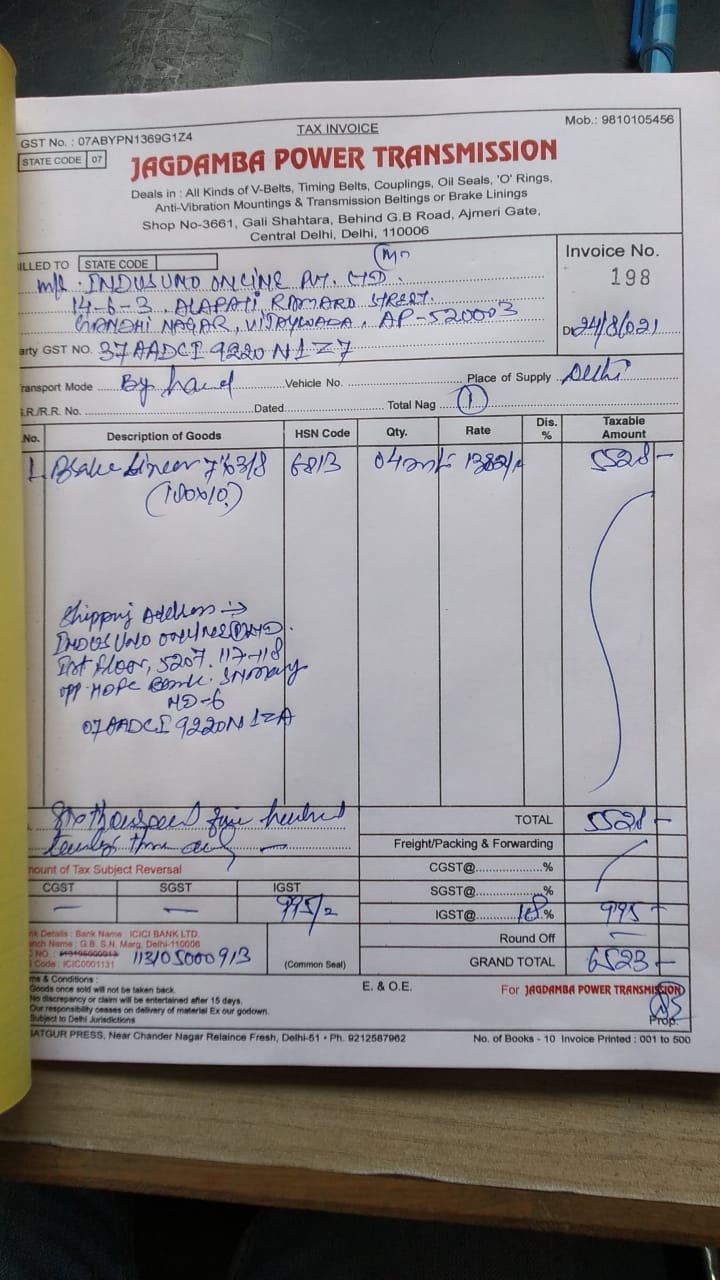 TAX INVOICE
Mob.: 9810105456
GST No. : 07ABYPN1369G1Z4
STATE CODE 07
JAGDAMBA POWER TRANSMISSION
Deals in : All Kinds of V-Belts, Timing Belts, Couplings, Oil Seals, 'O' Rings,
Anti-Vibration Mountings & Transmission Beltings or Brake Linings
Shop No-3661, Gali Shahtara, Behind G.B Road, Ajmeri Gate,
Central Delhi, Delhi, 110006
ILLED TO STATE CODE
Invoice No.
198
M/s. INDUS UNO ONLINE PVT. LTD.
14-6-3, ALAPATI, RAMARO STREET.
GANDHI NAGAR, VIJAYWADA, AP-520003
Dt 24/8/021
arty GST NO. 37AADCI9220N1Z7
ransport Mode By hand Vehicle No. Place of Supply Delhi
.R./R.R. No. Dated Total Nag 1
.No. Description of Goods HSN Code Qty. Rate Dis. % Taxable Amount
1. Brake Liner 7"63/8 6813 04 1382/- 5528-
Shipping Address →
INDUS UNO ONLINE
Ist floor, 5207. 117-118
opp. HDFC Bank.
ND-6
07AADCI9220N1ZA
Six thousand five hundred
twenty three only
TOTAL 5528-
Freight/Packing & Forwarding
mount of Tax Subject Reversal
CGST@ %
CGST SGST IGST
SGST@ %
— — 995/-
IGST@ 18 % 995-
Round Off —
GRAND TOTAL 6523-
nk Details : Bank Name : ICICI BANK LTD.
nch Name : G.B. S.N. Marg, Delhi-110006
NO.: 113105000913
Code : ICIC0001131
(Common Seal)
ms & Conditions :
Goods once sold will not be taken back.
No discrepancy or claim will be entertained after 15 days.
Our responsibility ceases on delivery of material Ex our godown.
Subject to Delhi Jurisdictions
E. & O.E.
For JAGDAMBA POWER TRANSMISSION
Prop.
SATGUR PRESS, Near Chander Nagar Relaince Fresh, Delhi-51 • Ph. 9212587962
No. of Books - 10 Invoice Printed : 001 to 500